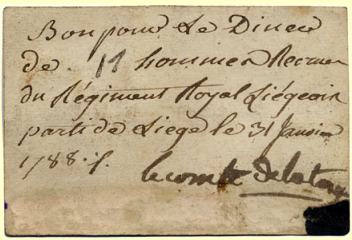 Bon pour Le Diner
de 11 hommes Recrues
du Régiment Royal Liégeois
parti de Liege le 31 Janvier
1788 .f.
le comte de